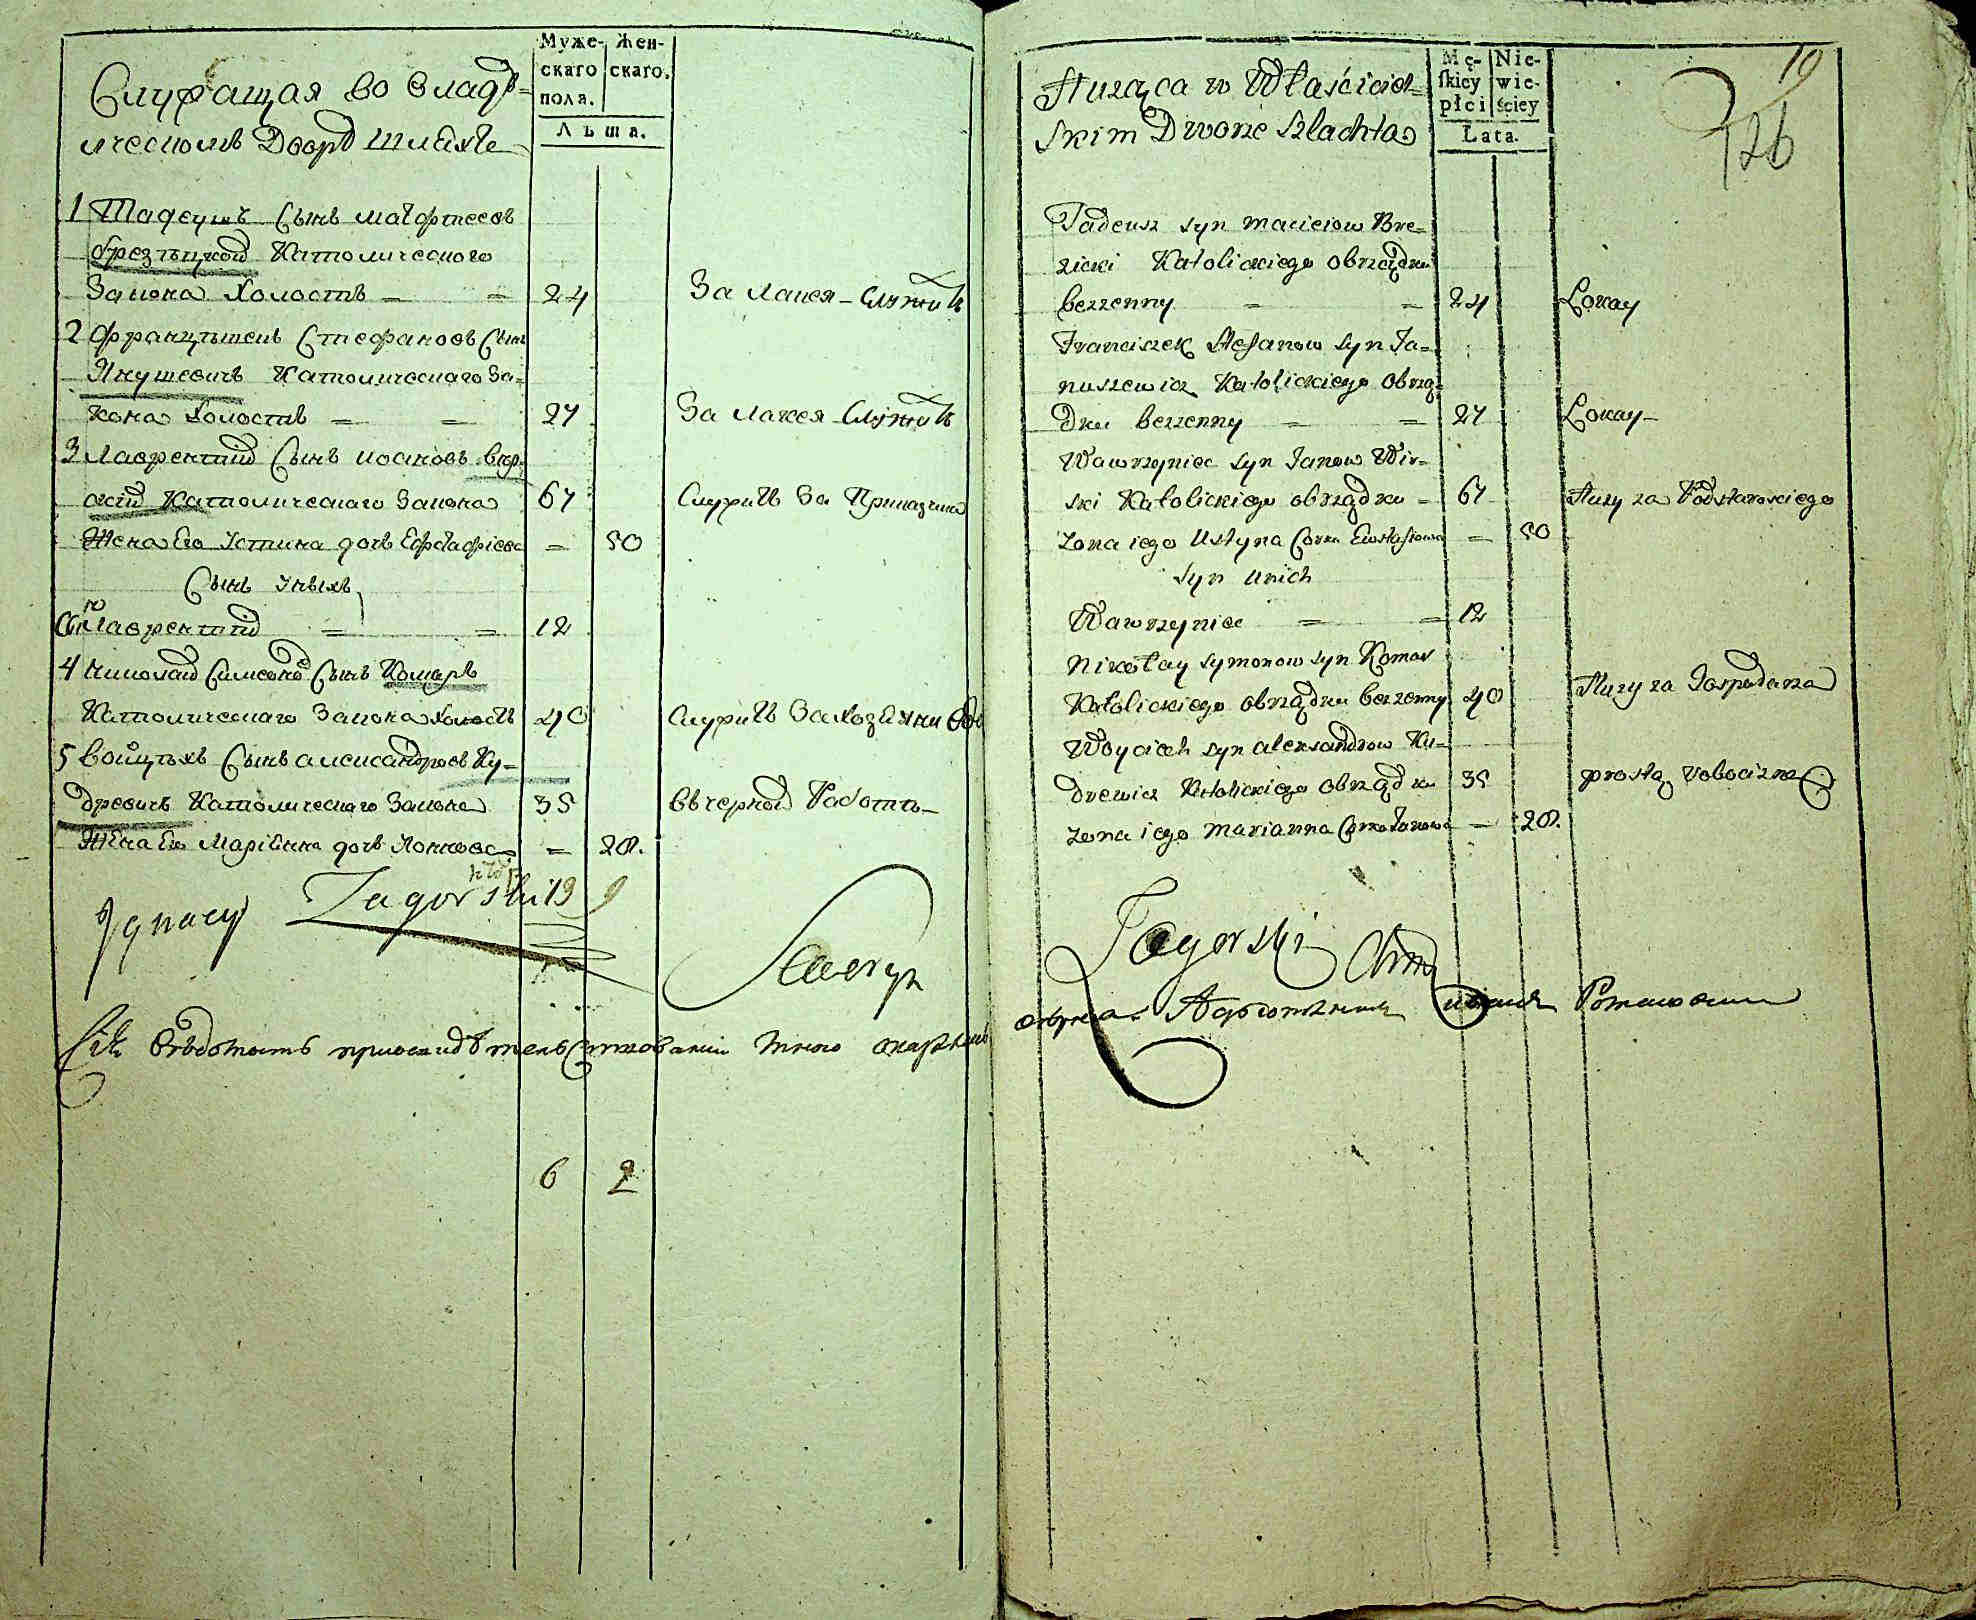 Муже-
скаго
пола.
Жен-
скаго.
Лѣта.
Служащая во владѣ-
лческомъ Дворѣ шляхта
1 Тадеушъ Сынъ
Брезицкой Католическаго
Закона Холостъ — = 24 За лакея Служитъ
2 Францышекъ Стефановъ Сынъ
Янушевичъ Католическаго За-
кона Холостъ = = 27 За лакея Служитъ
3 Лаврентий Сынъ Иоановъ Вир-
ский Католическаго Закона 67 Служитъ За Приказчика
Жена Его Устина дочь = 50
Сынъ
Лаврентий = = 12
4 Николай Симоновъ Сынъ Комаръ
Католическаго Закона Холостъ 40 Служитъ За
5 Войцѣхъ Сынъ Александровъ Ку-
древичъ Католическаго Закона 35 В черной Работѣ
Жена Его Марианна дочь = 20.
Ignacy Zagorski
6 2
Mę-
skiey
płci
Nie-
wie-
ściey
Lata.
19
126
Służąca w Właściciel=
skim Dworze szlachta
Tadeusz syn Macieiow Bre=
zicki Katolickiego obrządku
bezżenny — = 24 Lokay
Franciszek Stefanow syn Ja=
nuszewicz Katolickiego obrzą=
dku bezżenny = = 27 Lokay
Wawrzyniec syn Janow Wir=
ski Katolickiego obrządku = 67 Służy za Podstarosciego
żona iego Ustyna Corka Eustafiowa = 50
syn unich
Wawrzyniec = = 12
Nikołay Symonow syn Komar
Katolickiego obrządku bezżenny 40 Służy za Gospodarza
Woyciech syn Alexandrow Ku=
drewicz Katolickiego obrządku 35 prostą robocizną
żona iego Marianna Corka Janowa — 20.
Zagorski